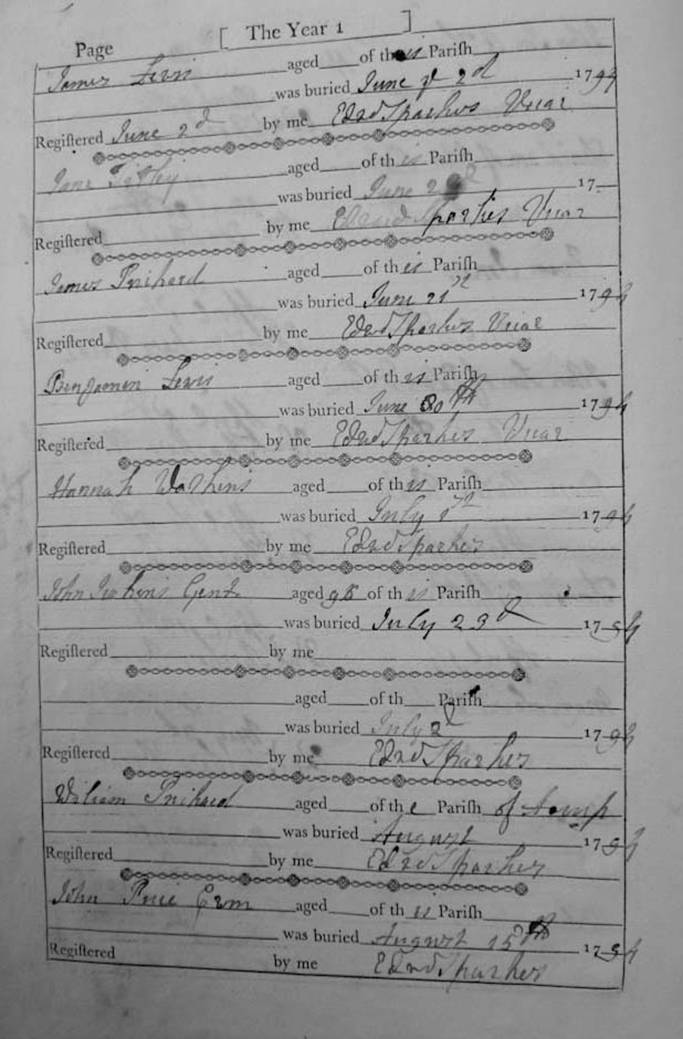 Page [ The Year 1 ]
James Lewis aged of this Parish
was buried June ye 2d 1794
Registered June 2d by me Edwd Sparkes Vicar
Jane aged of this Parish
was buried June 17
Registered by me Edwd Sparkes Vicar
James Prichard aged of this Parish
was buried June 21st 1794
Registered by me Edwd Sparkes Vicar
Benjamin Lewis aged of this Parish
was buried June 30th 1794
Registered by me Edwd Sparkes Vicar
Hannah Watkins aged of this Parish
was buried July 1794
Registered by me Edwd Sparkes
John Gent aged of this Parish
was buried July 23d 1794
Registered by me
aged of th Parish
was buried July 1794
Registered by me Edwd Sparkes
William Prichard aged of the Parish of
was buried August 1794
Registered by me Edwd Sparkes
John Price aged of this Parish
was buried August 15th 1794
Registered by me Edwd Sparkes